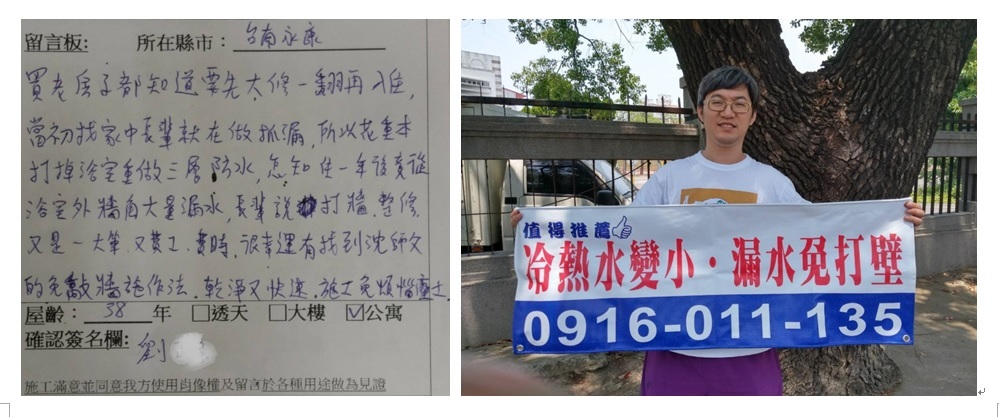 留言板: 所在縣市: 台南永康
買老房子都知道要先大修一翻再入住,
當初找家中長輩就在做抓漏,所以花重本
打掉浴室重做三層防水,怎知住一年後竟從
浴室外牆角大量漏水,長輩說打牆.整修.
又是一大筆.又費工.費時.很幸運有找到沈師父
的免敲牆施作法.乾淨又快速.施工免煩惱塵土.
屋齡: 38 年 □透天 □大樓 ☑公寓
確認簽名欄: 劉
施工滿意並同意我方使用肖像權及留言於各種用途做為見證
值得推薦
冷熱水變小・漏水免打壁
0916-011-135